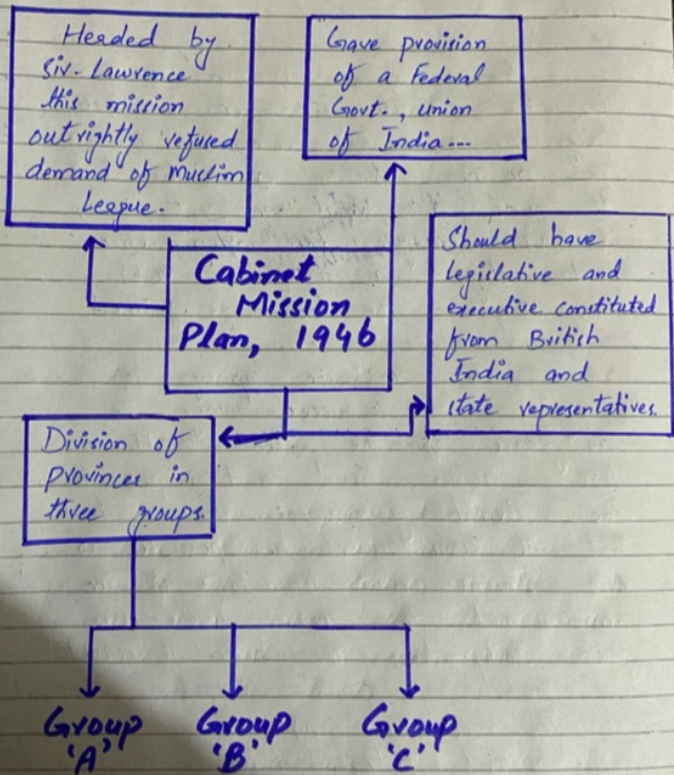 Headed by
Sir. Lawrence
this mission
outrightly refused
demand of Muslim
League.
Gave provision
of a Federal
Govt., union
of India...
Cabinet
Mission
Plan, 1946
Should have
legislative and
executive constituted
from British
India and
state representatives.
Division of
provinces in
three groups.
Group
'A'
Group
'B'
Group
'C'